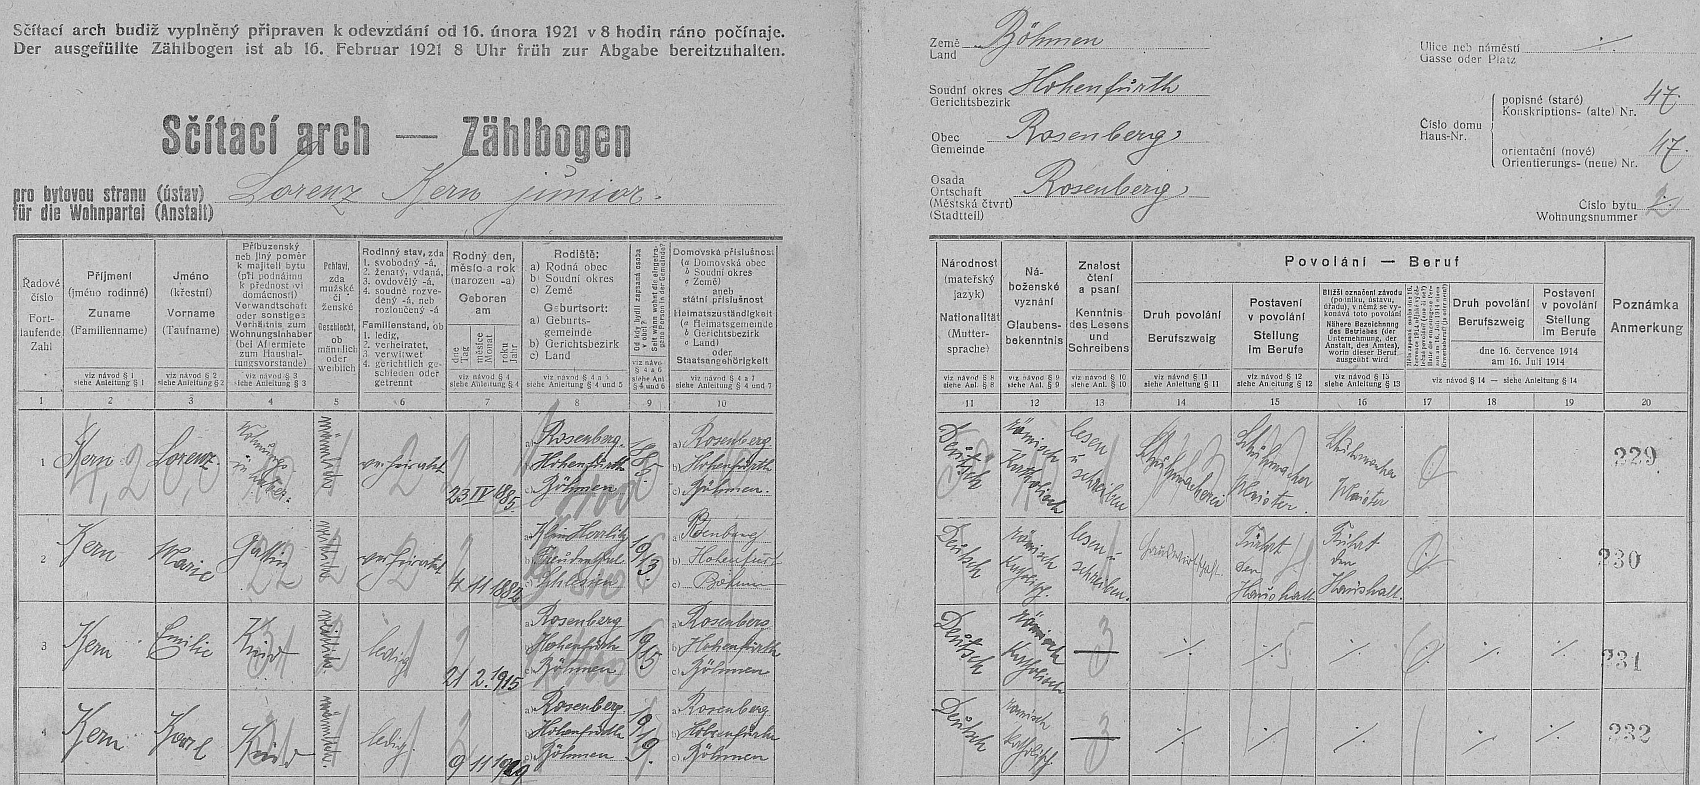 Sčítací arch budiž vyplněný připraven k odevzdání od 16. února 1921 v 8 hodin ráno počínaje.
Der ausgefüllte Zählbogen ist ab 16. Februar 1921 8 Uhr früh zur Abgabe bereitzuhalten.
Sčítací arch — Zählbogen
pro bytovou stranu (ústav)
für die Wohnpartei (Anstalt)
Lorenz Kern junior.
Země
Land
Böhmen
Soudní okres
Gerichtsbezirk
Hohenfurth
Obec
Gemeinde
Rosenberg
Osada
Ortschaft
(Městská čtvrť)
(Stadtteil)
Rosenberg
Ulice neb náměstí
Gasse oder Platz
Číslo domu
Haus-Nr.
popisné (staré)
Konskriptions- (alte) Nr.
47.
orientační (nové)
Orientierungs- (neue) Nr.
47.
Číslo bytu
Wohnungsnummer
2.
Řadové
číslo
Fort-
laufende
Zahl
Příjmení
(jméno rodinné)
Zuname
(Familienname)
viz návod § 1
siehe Anleitung § 1
Jméno
(křestní)
Vorname
(Taufname)
viz návod § 2
siehe Anleitung § 2
Příbuzenský
neb jiný poměr
k majiteli bytu
(při podnájmu
k přednostovi
domácnosti)
Verwandtschaft
oder sonstiges
Verhältnis zum
Wohnungsinhaber
(bei Aftermiete
zum Haushal-
tungsvorstande)
viz návod § 3
siehe Anleitung § 3
Pohlaví,
zda
mužské
či
ženské
Geschlecht,
ob
männlich
oder
weiblich
Rodinný stav, zda
1. svobodný -á,
2. ženatý, vdaná,
3. ovdovělý -á,
4. soudně rozve-
dený -á, neb
rozloučený -á
Familienstand, ob
1. ledig,
2. verheiratet,
3. verwitwet
4. gerichtlich ge-
schieden oder
getrennt
Rodný den,
měsíc a rok
(narozen -a)
Geboren
am
dne
Tag
měsíce
Monat
roku
Jahr
viz návod § 4
siehe Anleitung § 4
Rodiště:
a) Rodná obec
b) Soudní okres
c) Země
Geburtsort:
a) Geburts-
gemeinde
b) Gerichtsbezirk
c) Land
viz návod § 4 a 5
siehe Anleitung § 4 und 5
Od kdy bydlí zapsaná osoba
v obci?
Seit wann wohnt die eingetra-
gene Person in der Gemeinde?
Domovská příslušnost
(a Domovská obec
b Soudní okres
c Země)
aneb
státní příslušnost
Heimatszuständigkeit
(a Heimatsgemeinde
b Gerichtsbezirk
c Land)
oder
Staatsangehörigkeit
viz návod § 4 a 7
siehe Anleitung § 4 und 7
Národnost
(mateřský
jazyk)
Nationalität
(Mutter-
sprache)
viz návod § 8
siehe Anl. § 8
Ná-
boženské
vyznání
Glaubens-
bekenntnis
viz návod § 9
siehe Anl. § 9
Znalost
čtení
a psaní
Kenntnis
des Lesens
und
Schreibens
viz návod § 10
siehe Anl. § 10
Povolání — Beruf
Druh povolání
Berufszweig
viz návod § 11
siehe Anleitung § 11
Postavení
v povolání
Stellung
im Berufe
viz návod § 12
siehe Anleitung § 12
Bližší označení závodu
(podniku, ústavu,
úřadu), v němž se vy-
konává toto povolání
Nähere Bezeichnung
des Betriebes (der
Unternehmung, der
Anstalt, des Amtes),
worin dieser Beruf
ausgeübt wird
viz návod § 13
siehe Anleitung § 13
Druh povolání
Berufszweig
Postavení
v povolání
Stellung
im Berufe
dne 16. července 1914
am 16. Juli 1914
viz návod § 14 — siehe Anleitung § 14
Poznámka
Anmerkung
1 2 3 4 5 6 7 8 9 10 11 12 13 14 15 16 17 18 19 20
1 Kern Lorenz
männlich
verheiratet
23 IV 1885
a) Rosenberg
b) Hohenfurth
c) Böhmen
1885
a) Rosenberg
b) Hohenfurth
c) Böhmen.
Deutsch
römisch
Katholisch
lesen
u
schreiben
Schuhmacherei
Schuhmacher
Meister.
Schuhmacher
Meister
229
2 Kern Marie Gattin
verheiratet
4 11 1882
c) Schlesien
1913.
b) Hohenfurt
c) Böhmen
Deutsch
römisch
lesen u
schreiben.
Führt
den
Haushalt
Führt
den
Haushalt.
230
3 Kern Emilie Kind
weiblich
ledig
21 2. 1915
a) Rosenberg
b) Hohenfurth
c) Böhmen
1915
a) Rosenberg
b) Hohenfurth
c) Böhmen
Deutsch
römisch
Katholisch
231
4 Kern Karl Kind
männlich
ledig.
9 11 1919
a) Rosenberg.
b) Hohenfurth
c) Böhmen
1919.
a) Rosenberg
b) Hohenfurth
c) Böhmen
Deutsch
römisch
232